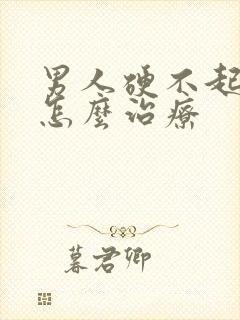 男人硬不起
怎麼治療
暮君卿